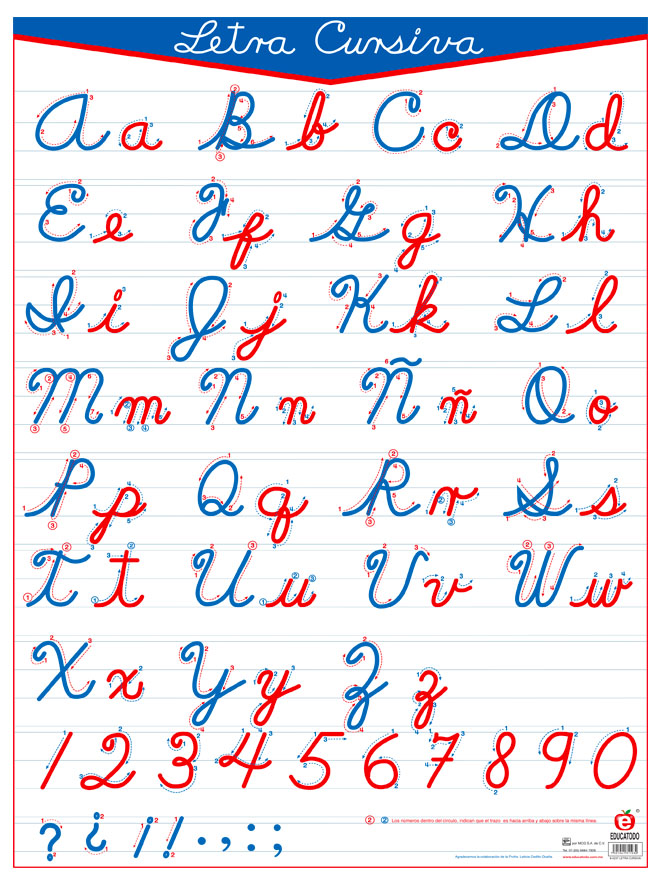 Letra Cursiva
A a B b C c D d
E e F f G g H h
I i J j K k L l
M m N n Ñ ñ O o
P p Q q R r S s
T t U u V v W w
X x Y y Z z
1 2 3 4 5 6 7 8 9 0
? ¿ ¡ ! . , : ;
② ② Los números dentro del círculo, indican que el trazo es hacia arriba y abajo sobre la misma línea.
EDUCATODO
www.educatodo.com.mx